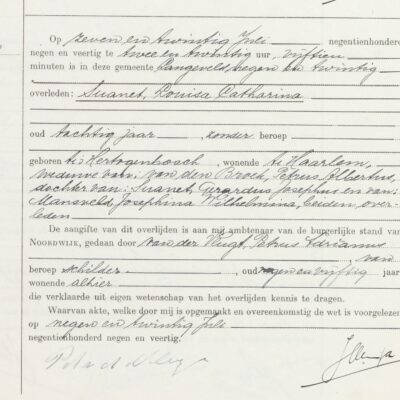 Op zeven en twintig Juli negentienhonderd
negen en veertig te twee en twintig uur, vijftien
minuten is in deze gemeente Langeveld, negen en twintig
overleden: Suanet, Louisa Catharina
oud tachtig jaar, zonder beroep
geboren te 's Hertogenbosch, wonende te Haarlem,
weduwe van: van den Broek, Petrus Albertus,
dochter van: Suanet, Gerardus Josephus en van:
Mansveld, Josephina Wilhelmina, beiden over-
leden
De aangifte van dit overlijden is aan mij ambtenaar van de burgerlijke stand van
NOORDWIJK, gedaan door van der Vlugt, Petrus Adrianus
, van
beroep schilder, oud negen en vijftig jaar
wonende alhier
die verklaarde uit eigen wetenschap van het overlijden kennis te dragen.
Waarvan akte, welke door mij is opgemaakt en overeenkomstig de wet is voorgelezen
op negen en twintig Juli
negentienhonderd negen en veertig.